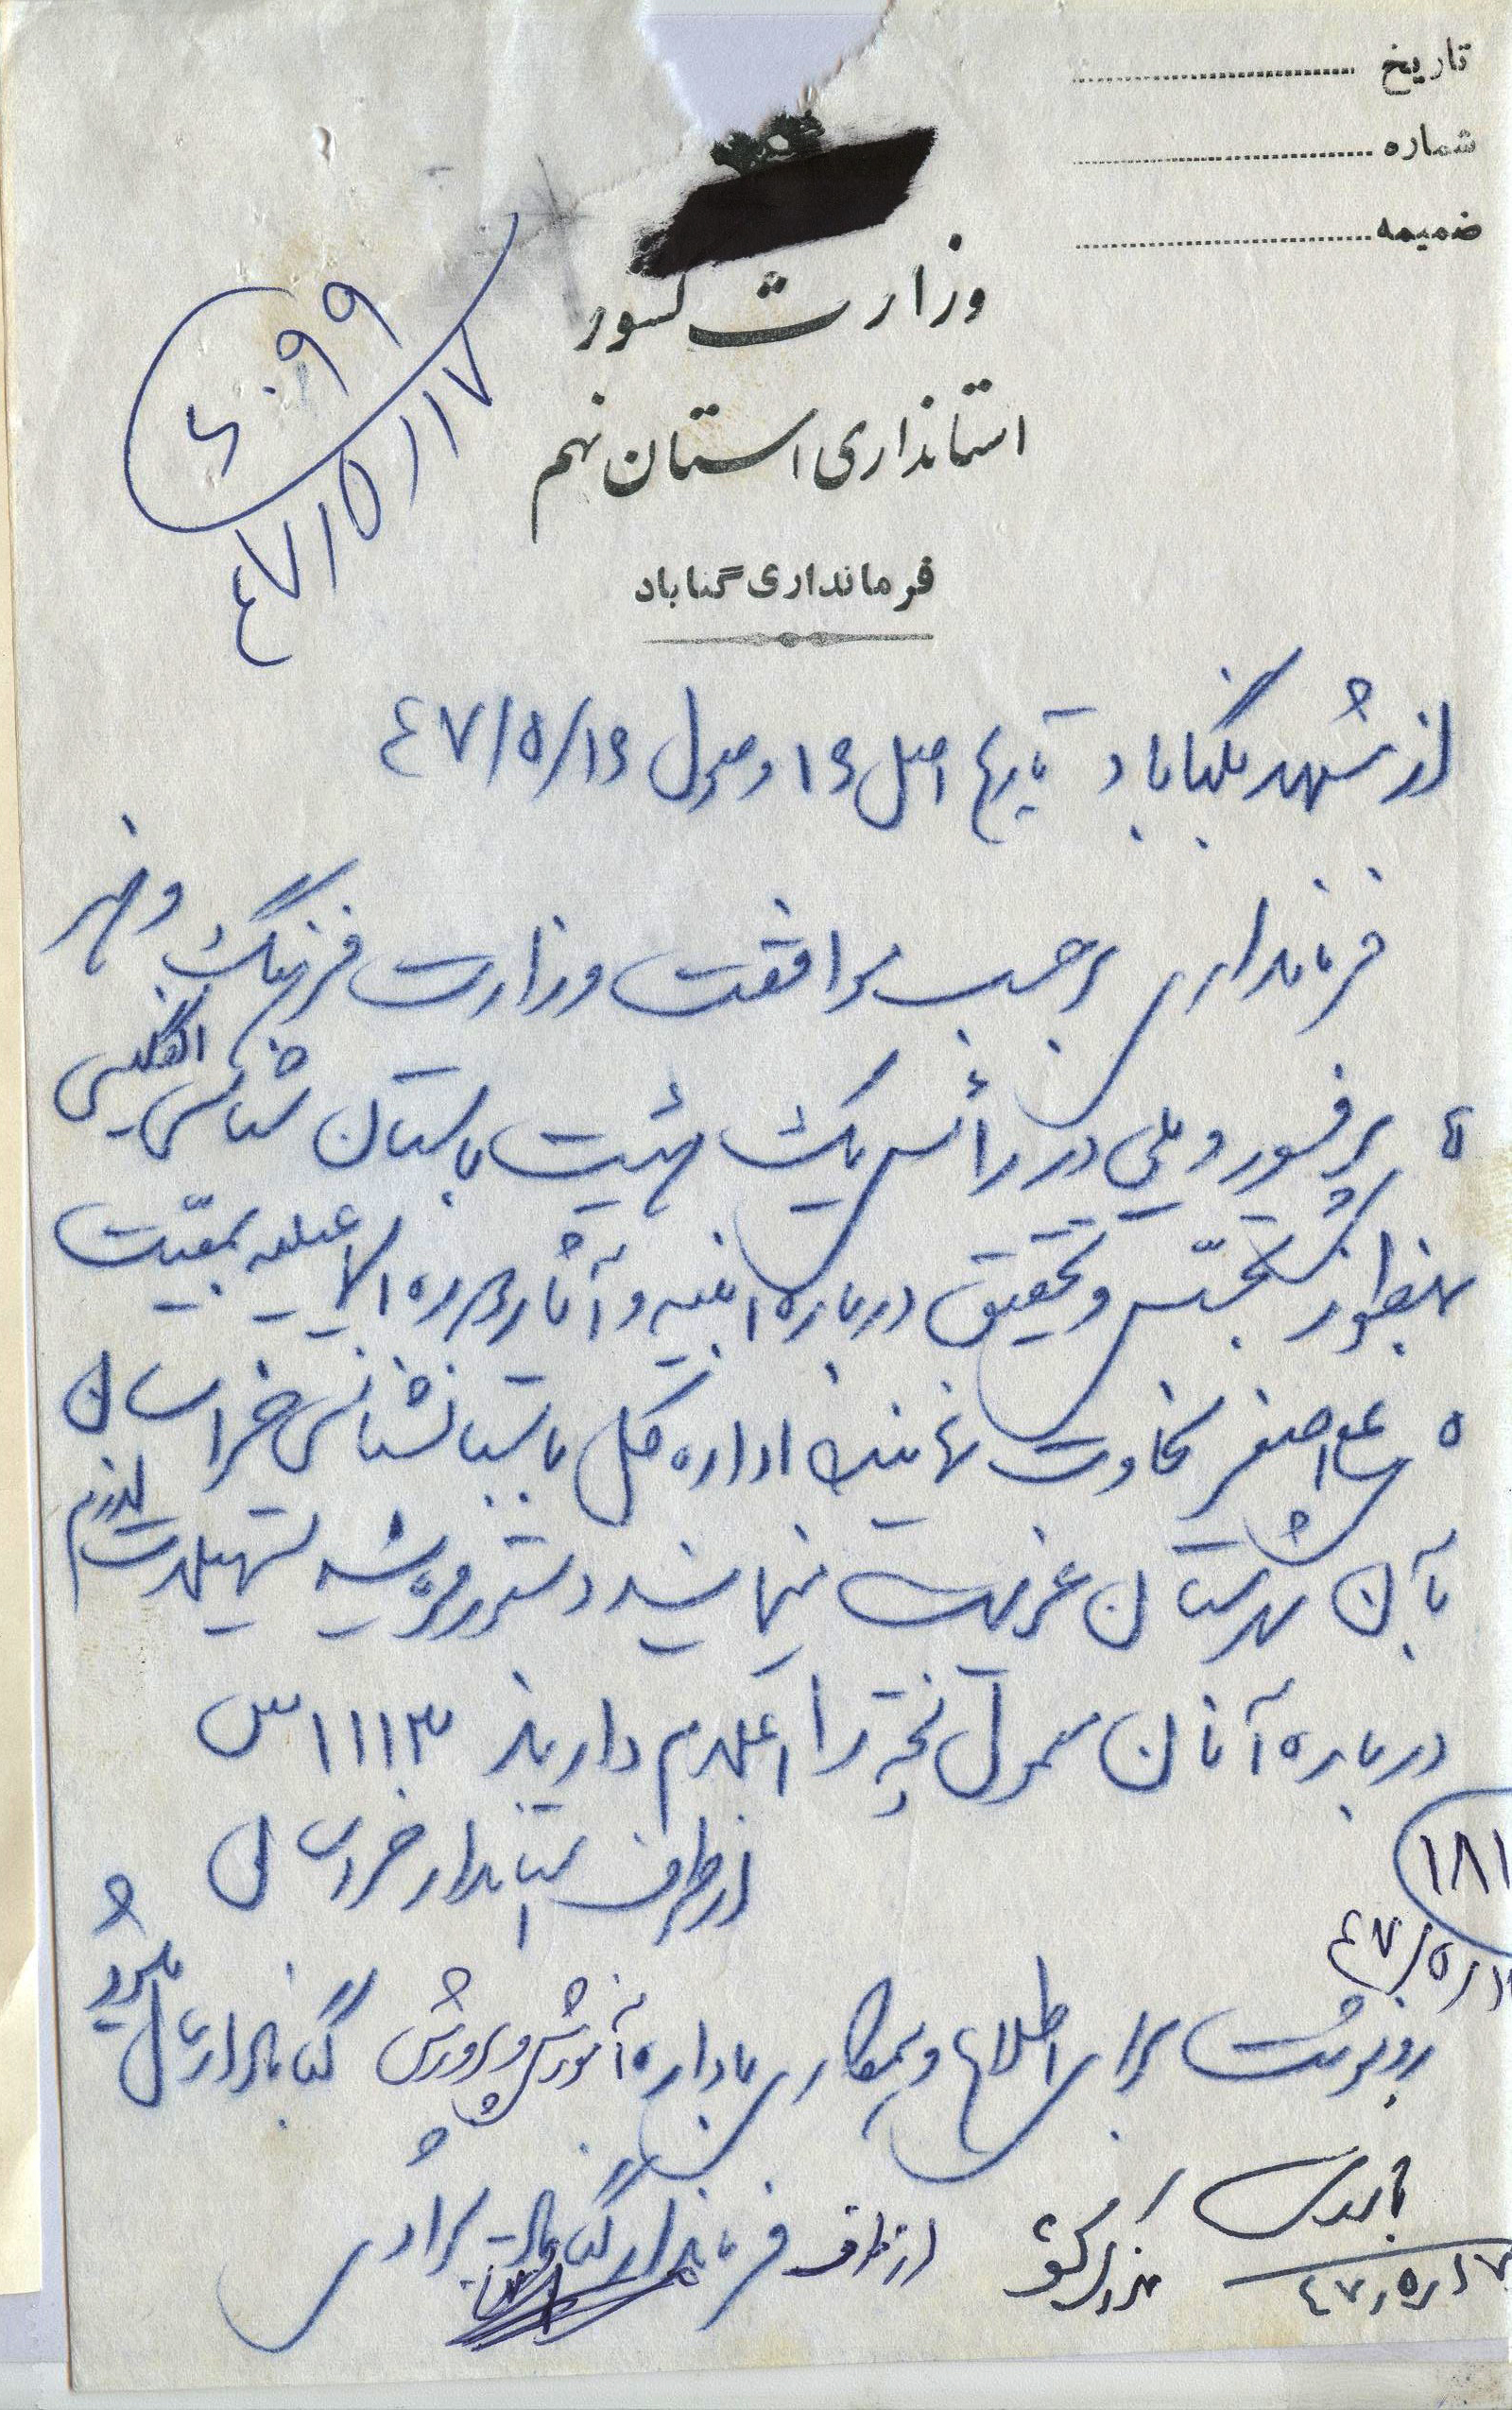 تاریخ
شماره
ضمیمه
وزارت کشور
استانداری استان نهم
فرمانداری گناباد
۶۰۹۹
۴۷/۵/۱۷
از مشهد بگناباد تاریخ اصل ۱۶ وصول ۴۷/۵/۱۶
فرمانداری برحسب موافقت وزارت فرهنگ و هنر
پرفسور ویلی در رأس یک هیئت باستان شناسی انگلیسی
بمنظور تجسس و تحقیق درباره ابنیه و آثار دوره اسماعیلیه بمعیت
علی اصغر سخاوت نماینده اداره کل باستانشناسی خراسان
بآن شهرستان عزیمت مینمایند دستور فرمائید تسهیلات لازم
درباره آنان معمول نتیجه را اعلام دارید ۱۱۱۱۳ س
از طرف استاندار خراسان
۱۸۱
۴۷/۵/
رونوشت برای اطلاع و همکاری باداره آموزش و پرورش گناباد ارسال میشود
از طرف فرماندار گناباد مرادی
بایگانی
۴۷/۵/۱۷